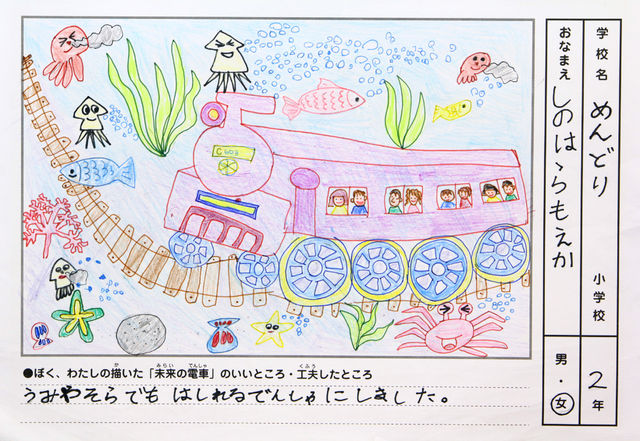 学校名 めんどり 小学校 2年
おなまえ しのはらもえか 男・女
C603
●ぼく、わたしの描いた「未来の電車」のいいところ・工夫したところ
うみやそらでもはしれるでんしゃにしました。